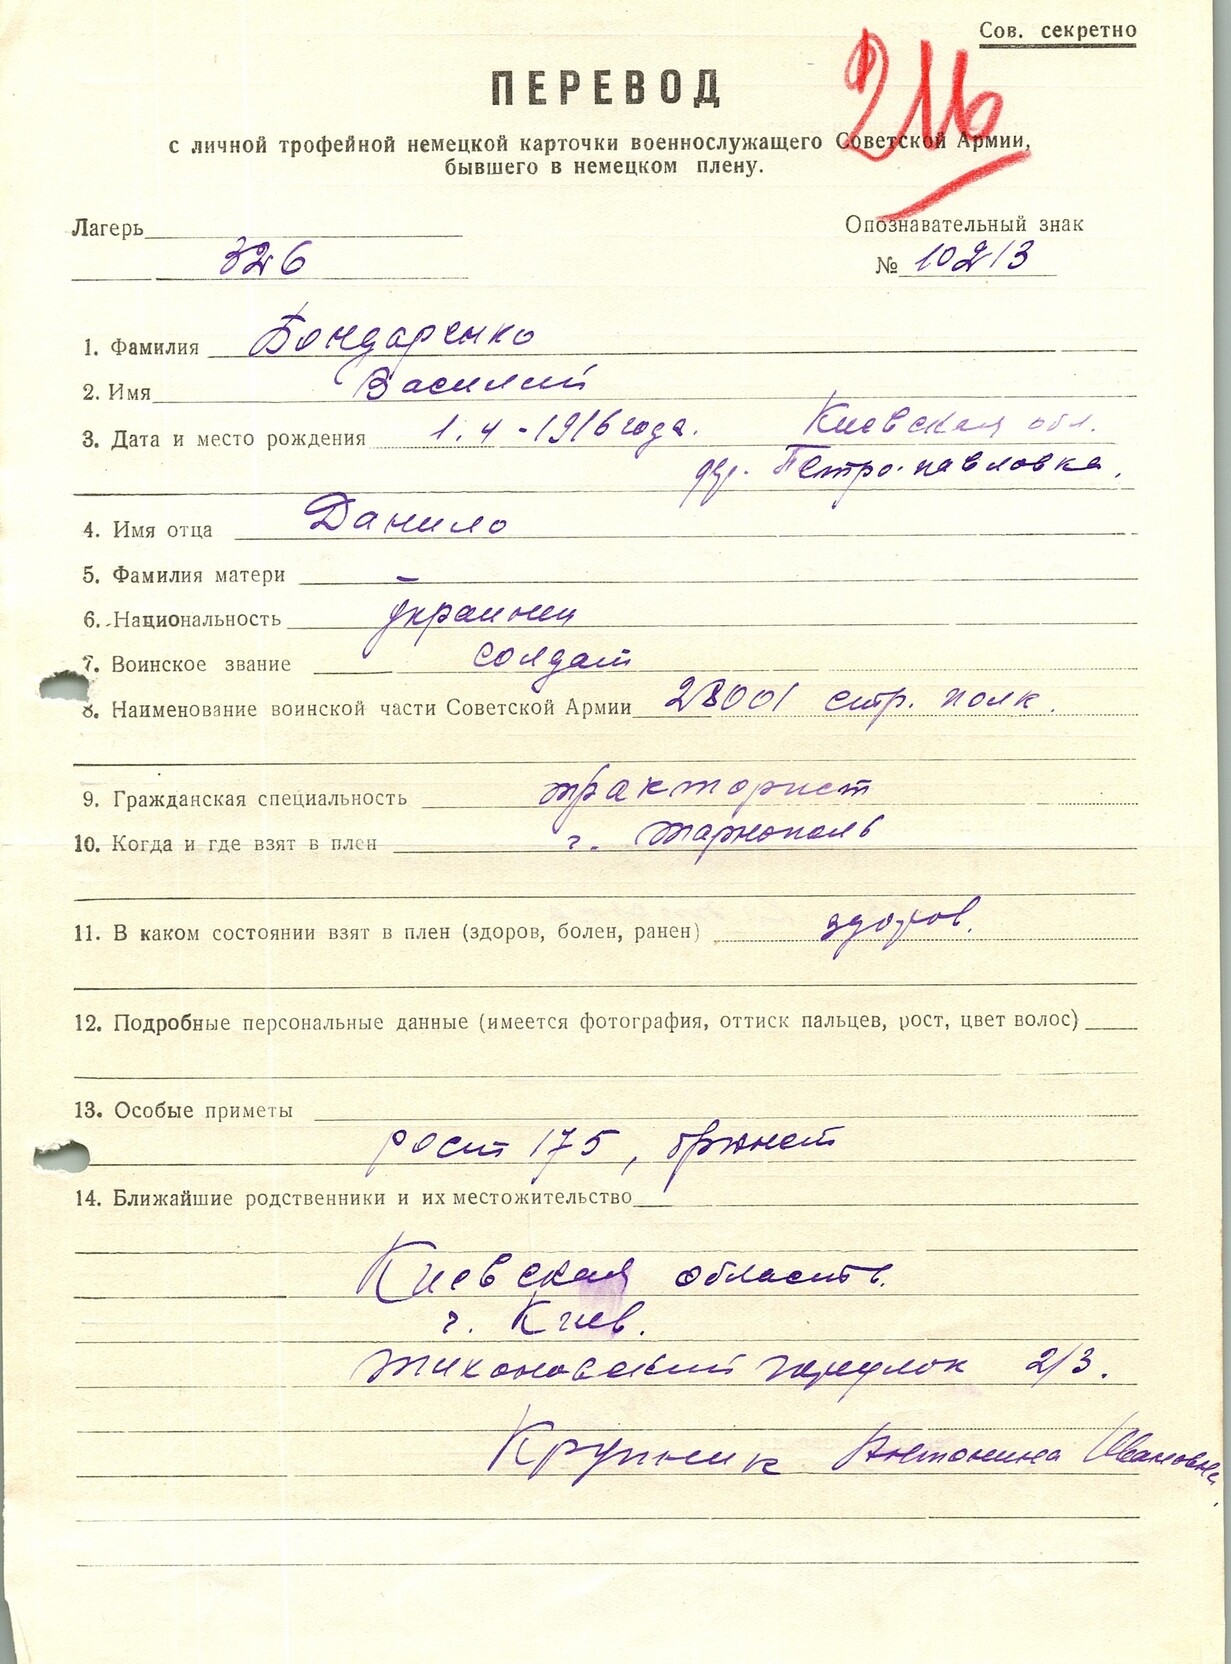 Сов. секретно
216
ПЕРЕВОД
с личной трофейной немецкой карточки военнослужащего Советской Армии,
бывшего в немецком плену.
Лагерь
Опознавательный знак
326
№ 10213
1. Фамилия Бондаренко
2. Имя Василий
3. Дата и место рождения 1. 4 - 1916 года. Киевская обл.
дер. Петро-павловка.
4. Имя отца Данило
5. Фамилия матери —
6. Национальность украинец
7. Воинское звание солдат
8. Наименование воинской части Советской Армии 28001 стр. полк.
9. Гражданская специальность тракторист
10. Когда и где взят в плен г. Тарнополь
11. В каком состоянии взят в плен (здоров, болен, ранен) здоров.
12. Подробные персональные данные (имеется фотография, оттиск пальцев, рост, цвет волос)
13. Особые приметы
рост 175, брюнет
14. Ближайшие родственники и их местожительство
Киевская область.
г. Киев.
Тихоновский переулок 2/3.
Крупник Антонина Ивановна.